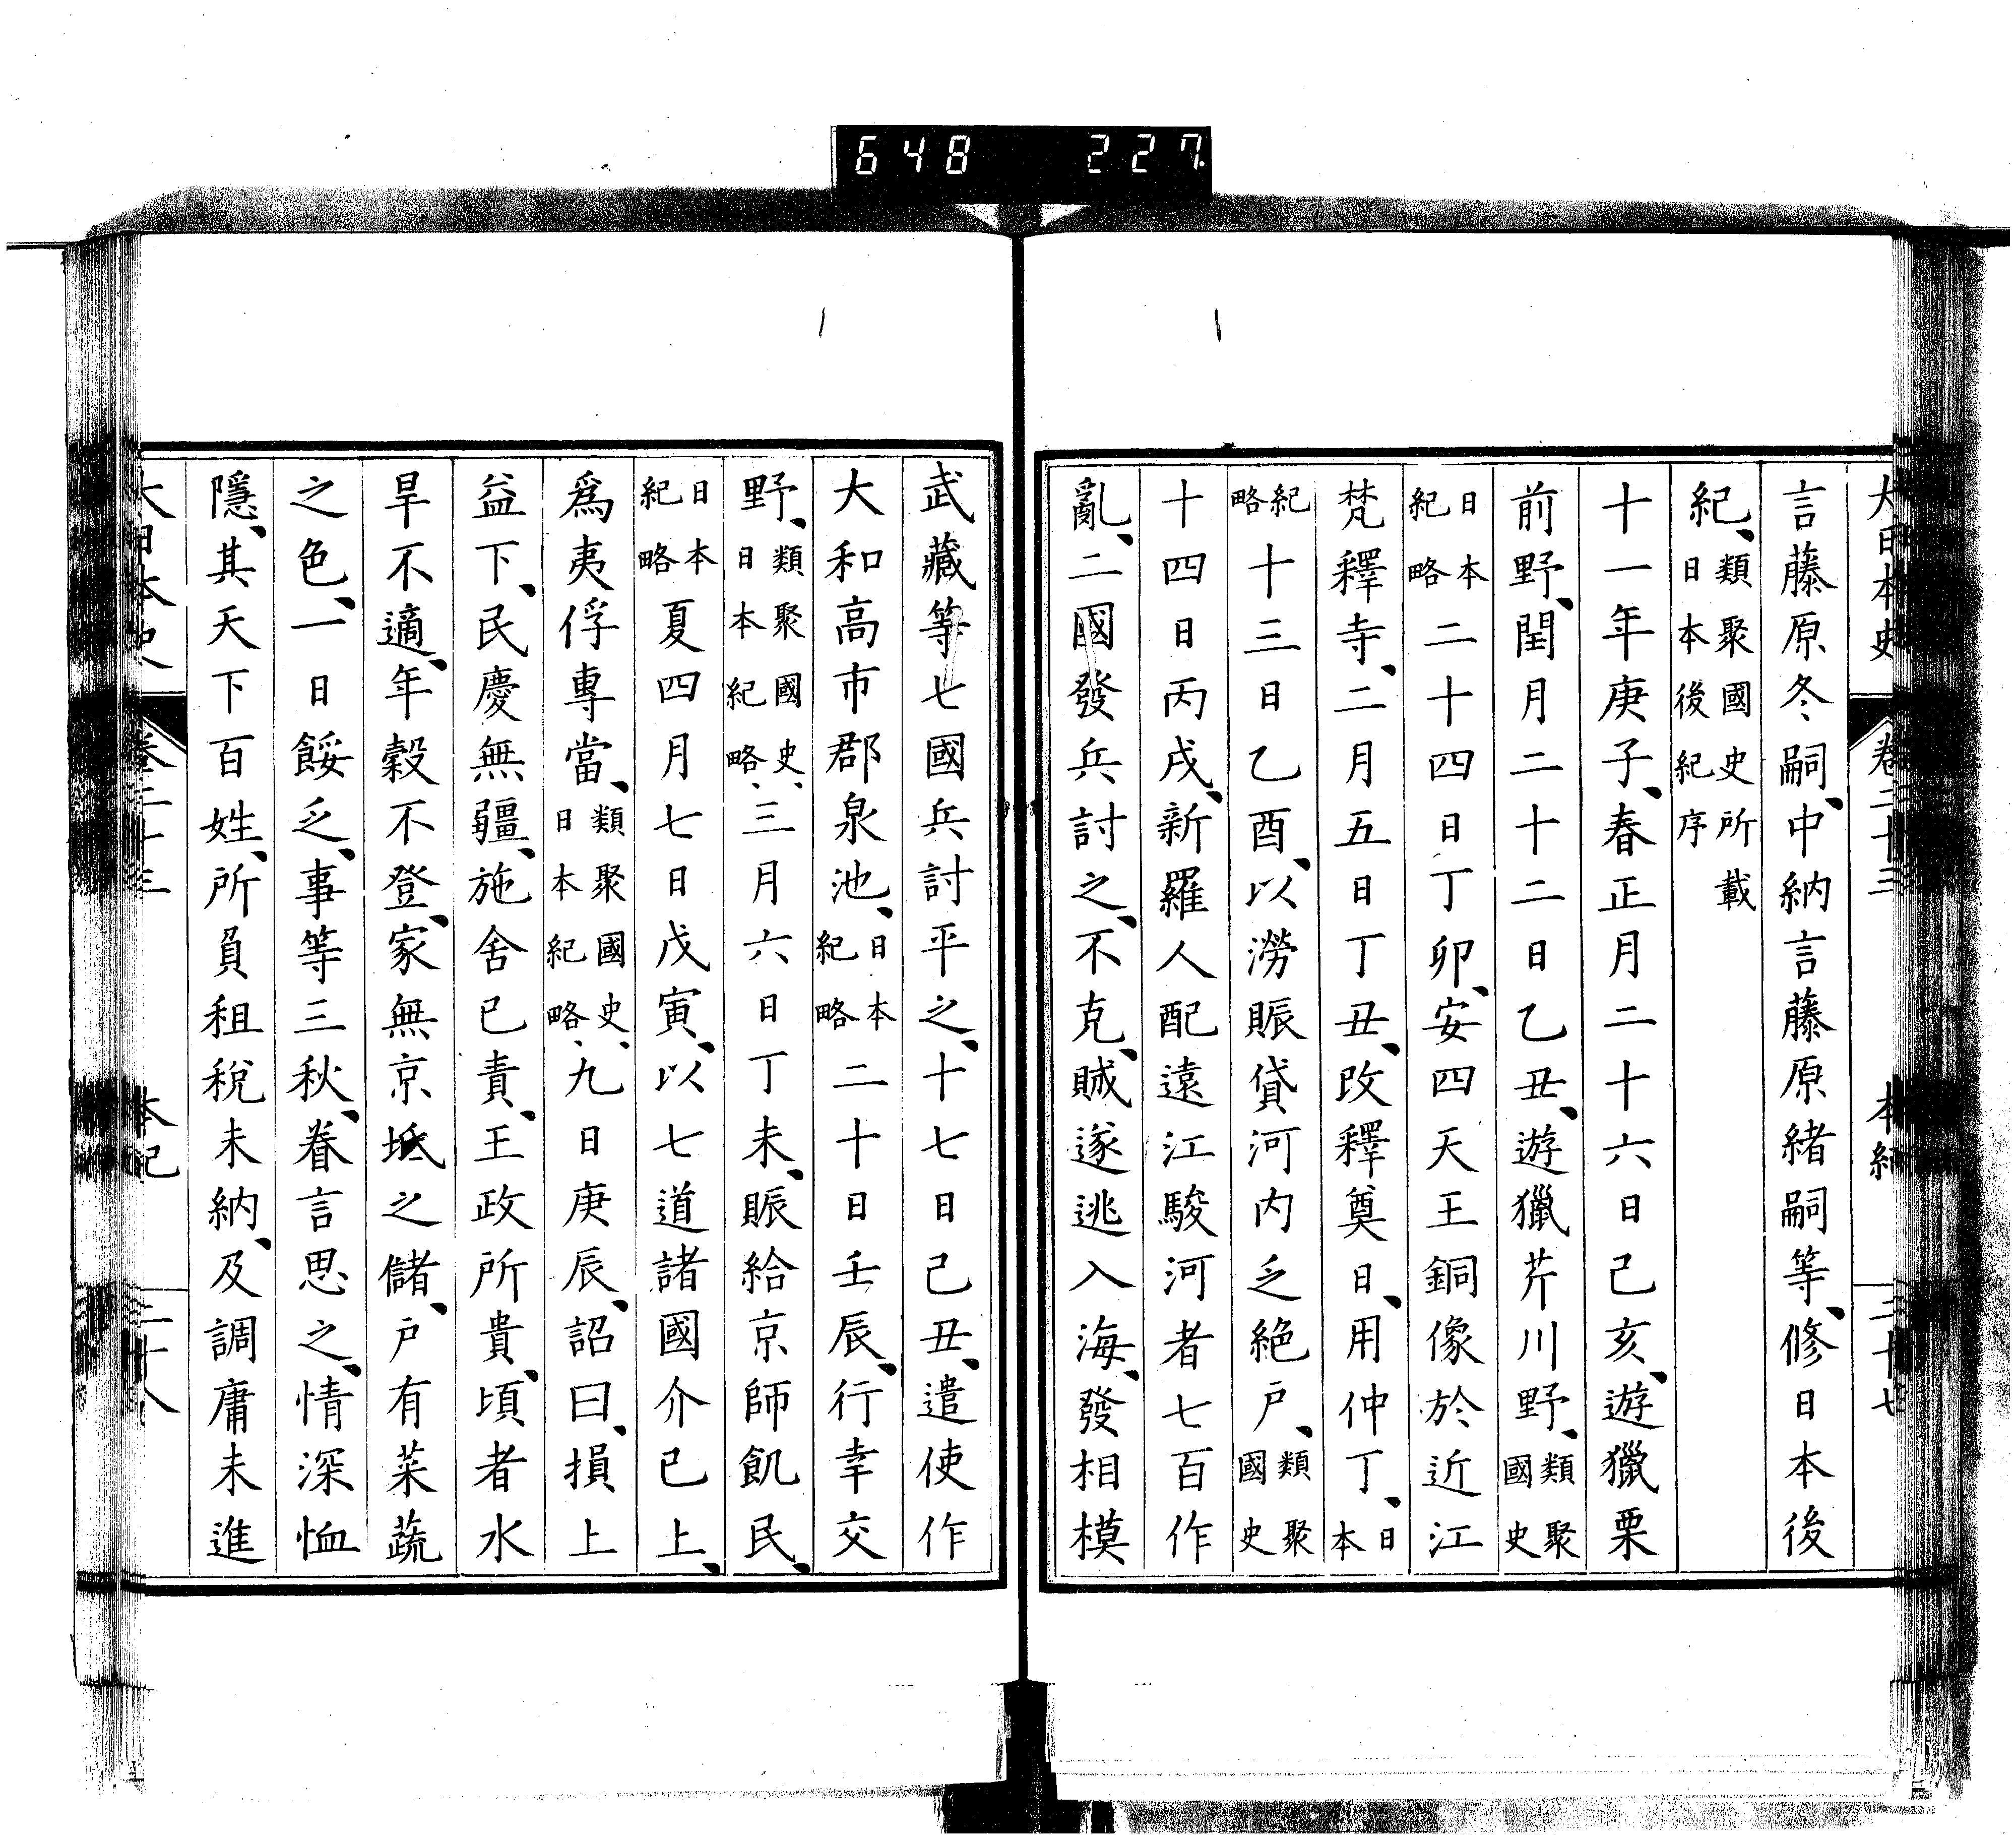 648 227
大日本史 卷二十三 本紀 三十七
言藤原冬嗣、中納言藤原緒嗣等、修日本後
紀、類聚國史所載日本後紀序
十一年庚子、春正月二十六日己亥、遊獵栗
前野、閏月二十二日乙丑、遊獵芹川野、類聚國史
日本紀略二十四日丁卯、安四天王銅像於近江
梵釋寺、二月五日丁丑、改釋奠日、用仲丁、日本
紀略十三日乙酉、以澇賑貸河内乏絶戸、類聚國史
十四日丙戌、新羅人配遠江駿河者七百作
亂、二國發兵討之、不克、賊遂逃入海、發相模
武藏等七國兵討平之、十七日己丑、遣使作
大和高市郡泉池、日本紀略二十日壬辰、行幸交
野、類聚國史、日本紀略、三月六日丁未、賑給京師飢民、
日本紀略夏四月七日戊寅、以七道諸國介已上、
爲夷俘專當、類聚國史、日本紀略、九日庚辰、詔曰、損上
益下、民慶無疆、施舍已責、王政所貴、頃者水
旱不適、年穀不登、家無京坻之儲、戸有菜蔬
之色、一日餒乏、事等三秋、眷言思之、情深恤
隱、其天下百姓、所負租税未納、及調庸未進
大日本史 卷二十三 本紀